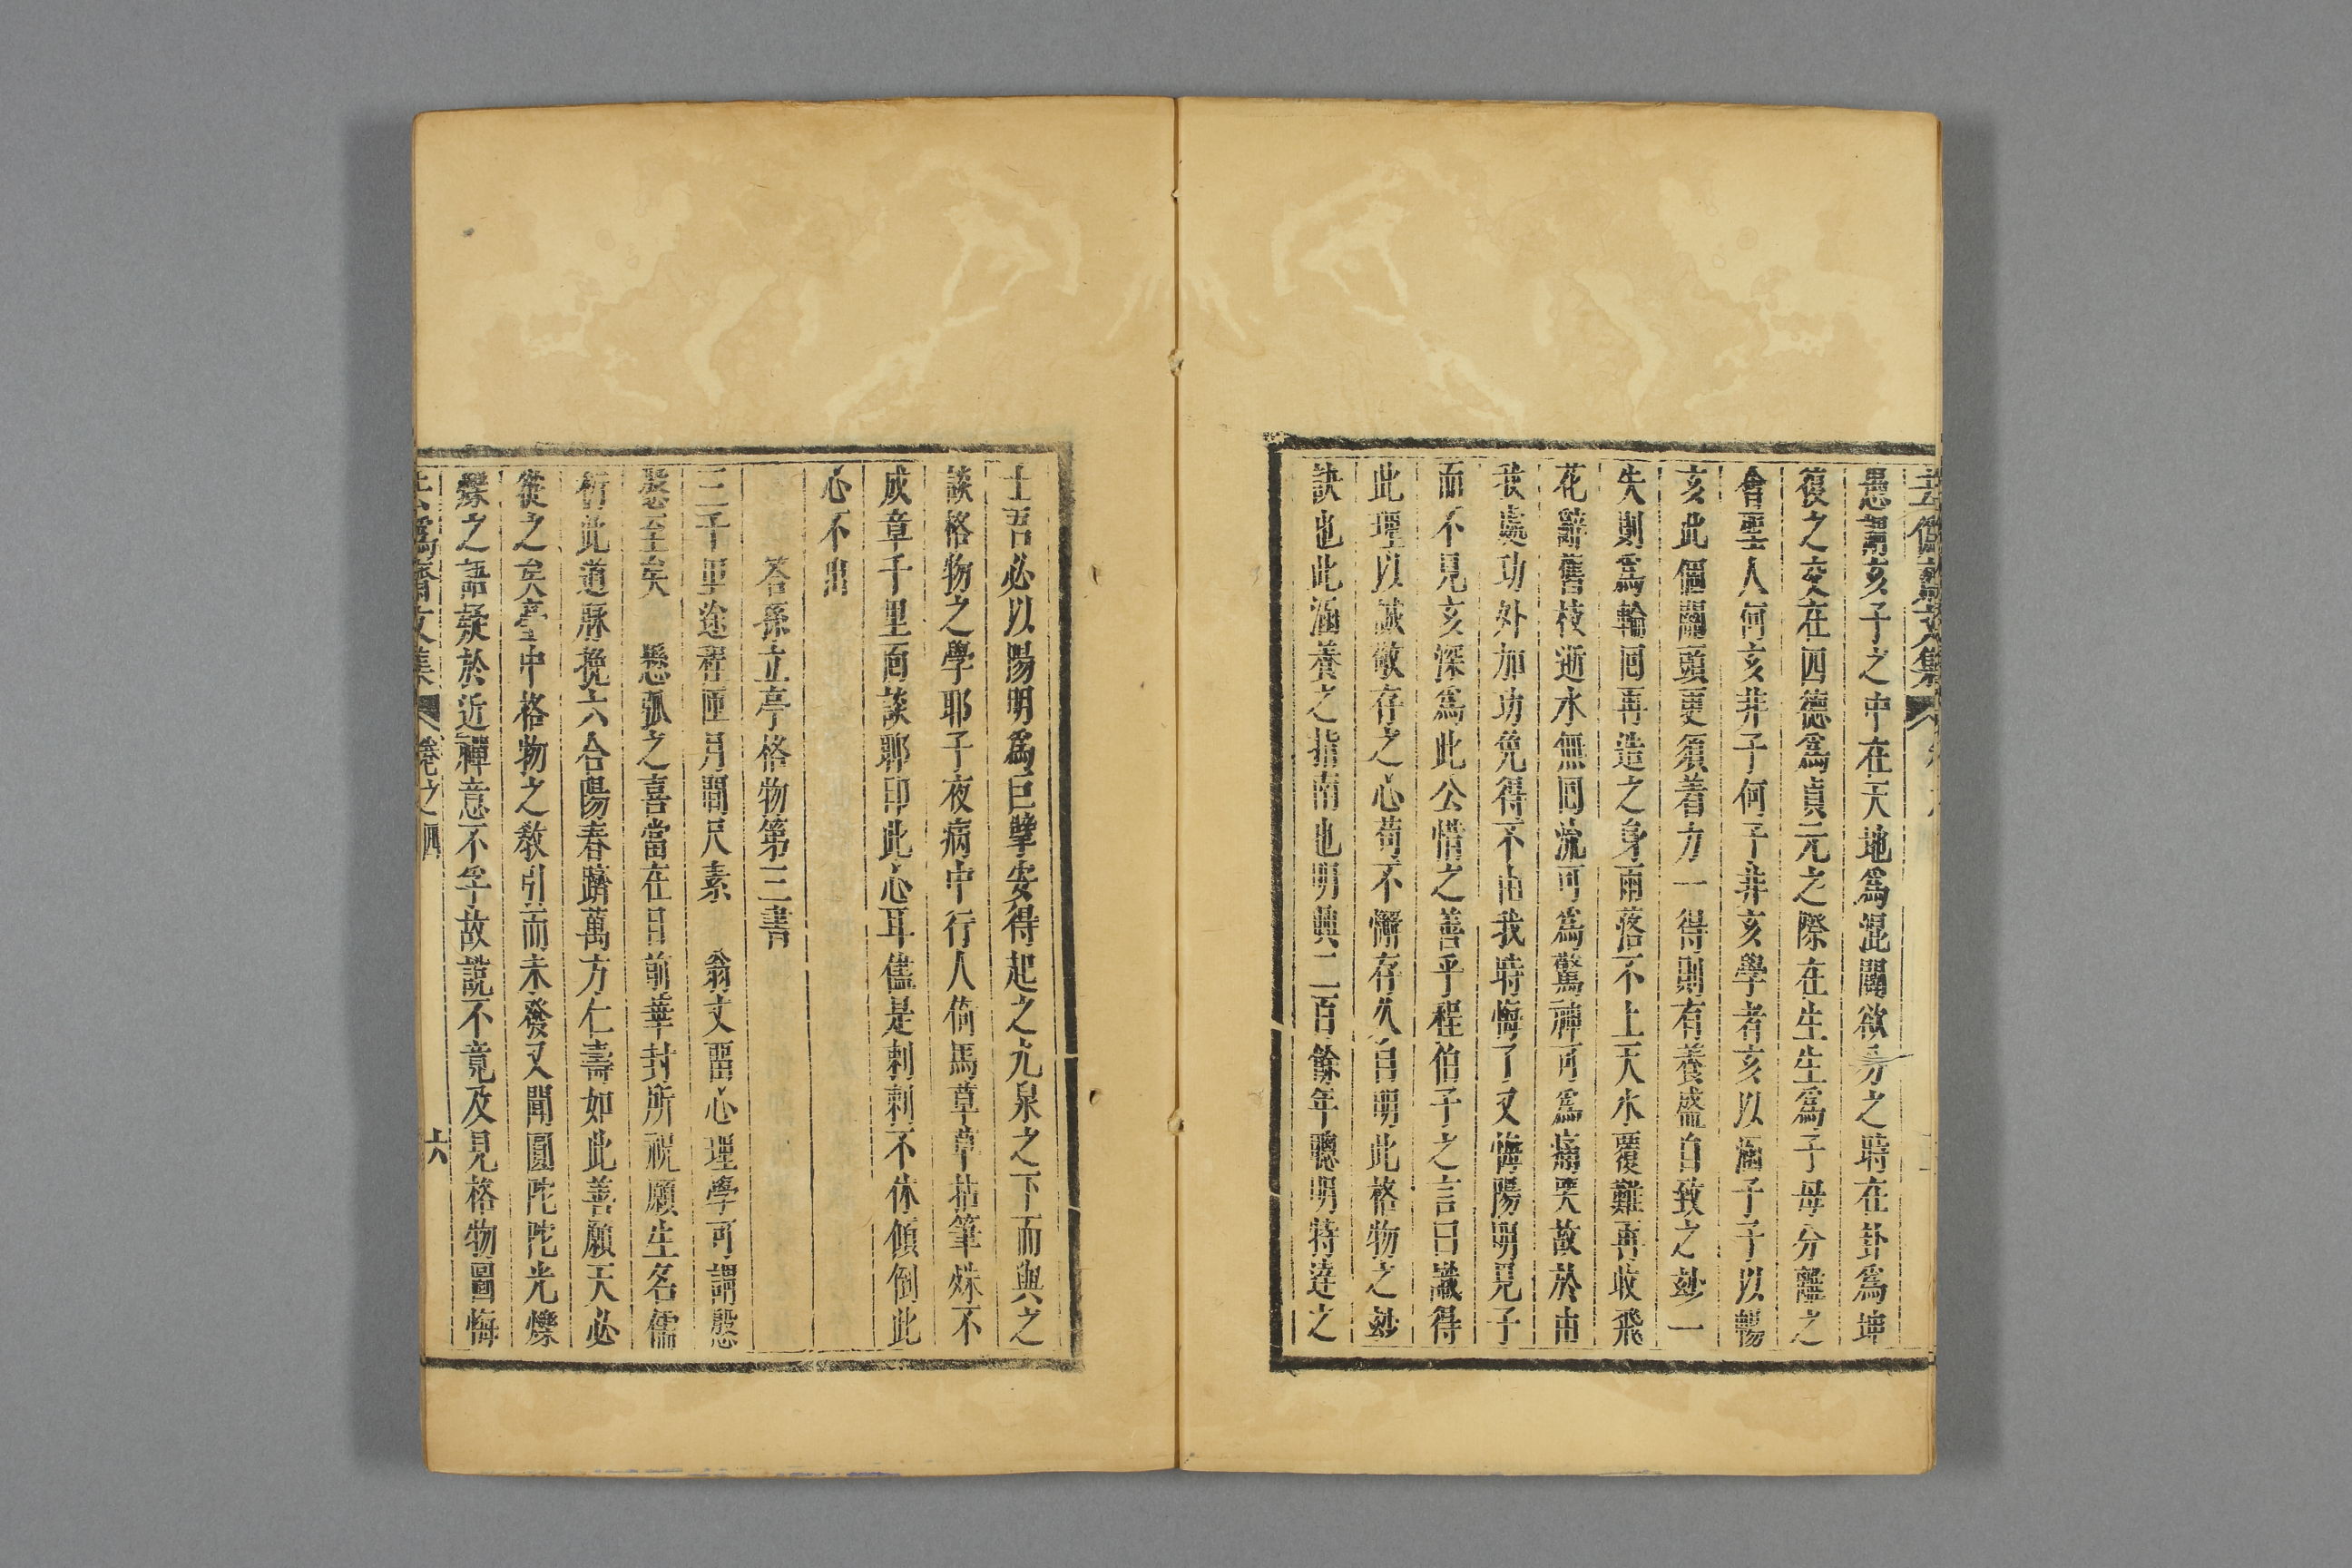 愚謂亥子之中在天地爲混闢欲分之時在卦爲坤
復之交在四德爲貞元之際在生生爲子母分離之
會聖人何亥非子何子非亥學者亥以涵子子以暢
亥此個關頭更須着力一得則有養盛自致之妙一
失則爲輪囘再造之身雨落不上天水覆難再收飛
花辭舊枝逝水無囘流可爲驚神可爲痛哭故於由
我處功外加功免得不由我時悔了又悔陽明見子
而不見亥深爲此公惜之善乎程伯子之言曰識得
此理以誠敬存之心苟不懈存久自明此格物之妙
訣也此涵養之指南也明興二百餘年聰明特達之
士吾必以陽明爲巨擘安得起之九泉之下而與之
談格物之學耶子夜病中行人倚馬草草拈筆殊不
成章千里面談耶印此心耳儘是刺刺不休傾倒此
心不出
答孫立亭格物第三書
三千里途程匝月間尺素　翁丈畱心理學可謂慇
慇至矣　懸弧之喜當在目前華封所祝願生名儒
衍此道脉挽六合陽春躋萬方仁壽如此善願天必
從之矣臺中格物之敎引而未發又聞圓陀陀光爍
爍之語疑於近禪意不孚故說不竟及見格物圖悔
文集 卷之四
六